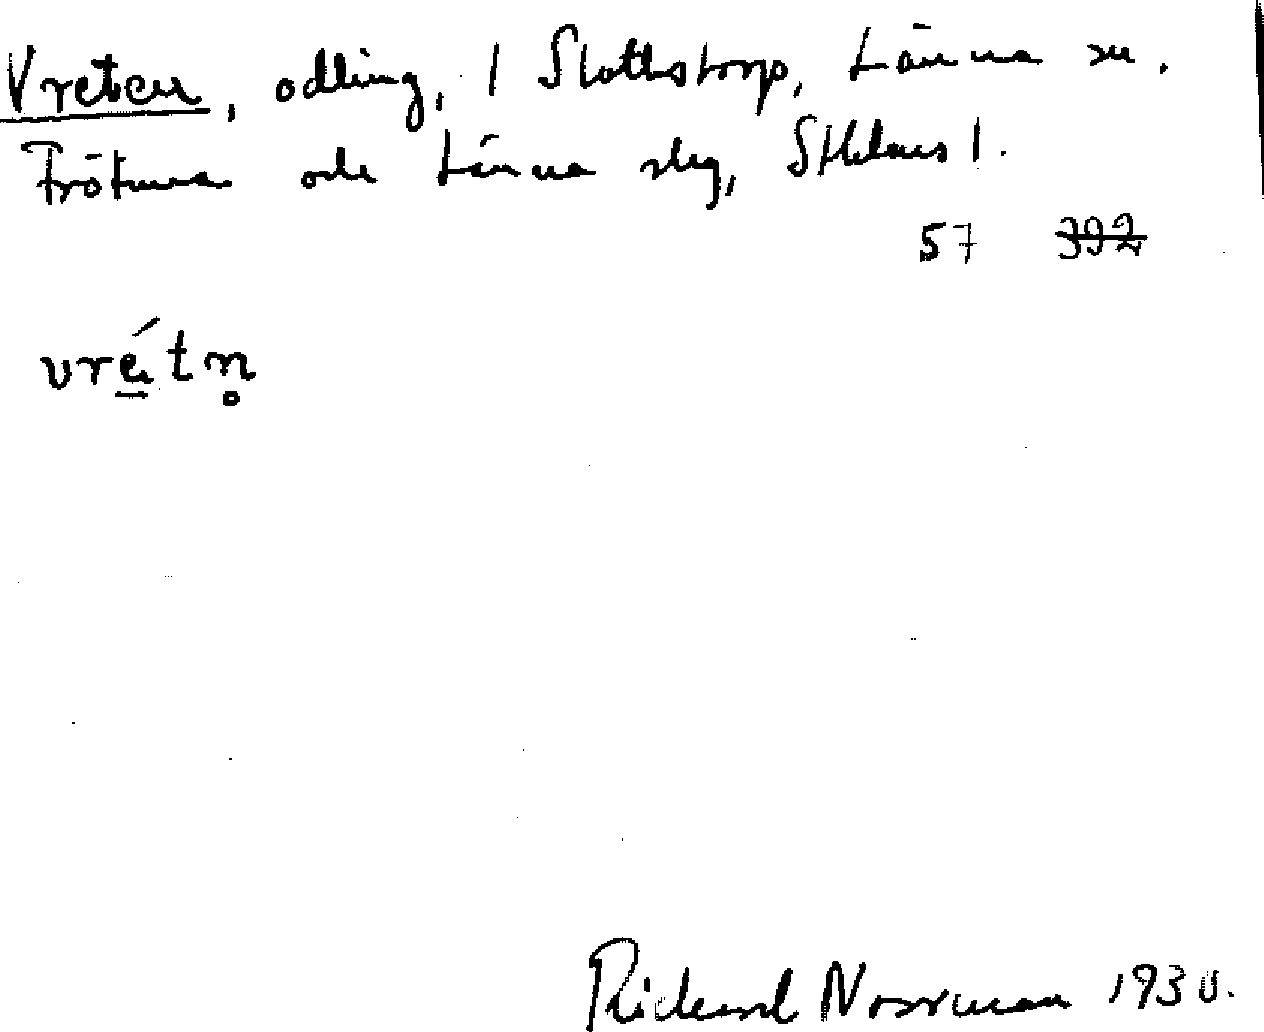 Vreten, odling, 1 Slottstorp, Länna sn.
Frötuna och Länna slg, Sthlms l.
57 392
vrétn̥
Rickard Norrman 1930.